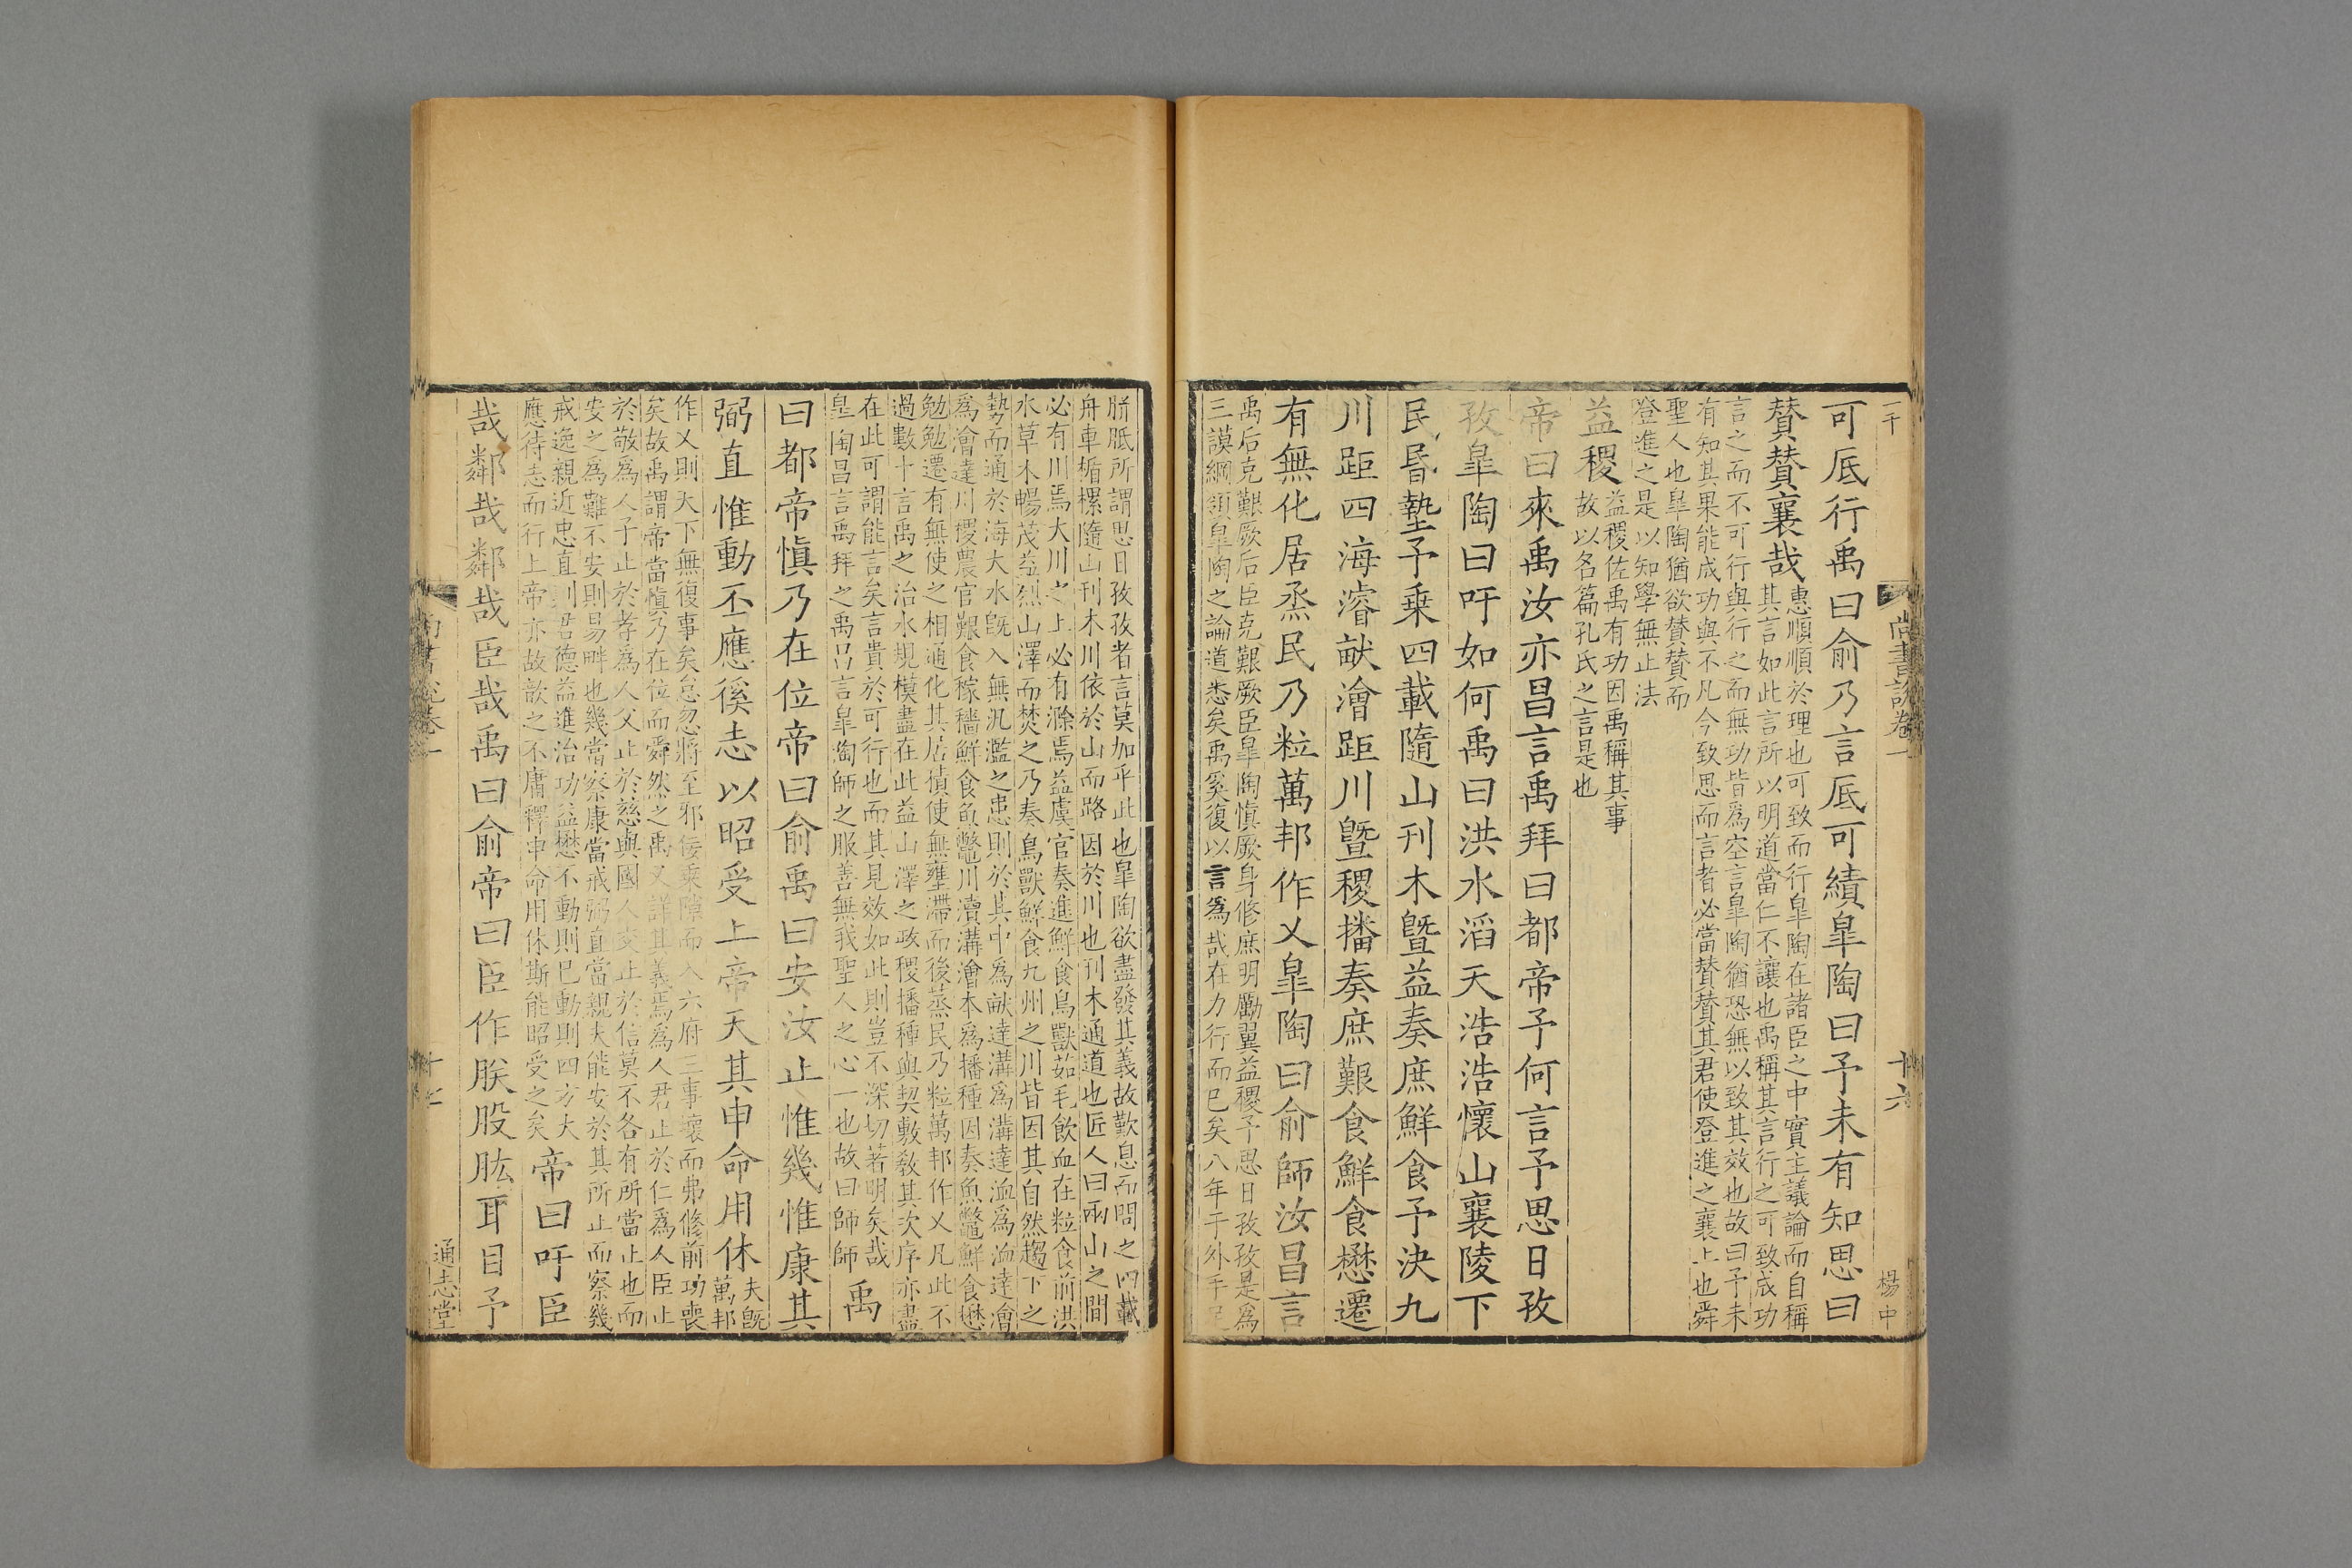 尚書說卷一
十六
楊中
可厎行禹曰俞乃言厎可績皐陶曰予未有知思曰
贊贊襄哉
惠順順於理也可致而行皐陶在諸臣之中實主議論而自稱
其言如此言所以明道當仁不讓也禹稱其言行之可致成功
言之而不可行與行之而無功皆為空言皐陶猶恐無以致其效也故曰予未
有知其果能成功與不凡今致思而言者必當贊贊其君使登進之襄上也舜
聖人也皐陶猶欲贊贊而
登進之是以知學無止法
益稷
益稷佐禹有功因禹稱其事
故以名篇孔氏之言是也
帝曰來禹汝亦昌言禹拜曰都帝予何言予思日孜
孜皐陶曰吁如何禹曰洪水滔天浩浩懷山襄陵下
民昏墊予乗四載隨山刊木暨益奏庶鮮食予決九
川距四海濬畎澮距川暨稷播奏庶艱食鮮食懋遷
有無化居烝民乃粒萬邦作乂皐陶曰俞師汝昌言
禹后克艱厥后臣克艱厥臣皐陶慎厥身修庶明勵翼益稷予思日孜孜是為
三謨綱領皐陶之論道悉矣禹奚復以言為哉在力行而已矣八年于外手足
胼胝所謂思日孜孜者言莫加乎此也皐陶欲盡發其義故歎息而問之四載
舟車楯樏隨山刊木川依於山而路因於川也刊木通道也匠人曰兩山之間
必有川焉大川之上必有滌焉益虞官奏進鮮食鳥獸茹毛飲血在粒食前洪
水草木暢茂益烈山澤而焚之乃奏鳥獸鮮食九州之川皆因其自然趨下之
勢而通於海大水旣入無氾濫之患則於其中為畎達溝為溝達洫為洫達澮
為澮達川稷農官艱食稼穡鮮食魚鼈川瀆溝澮本為播種因奏魚鼈鮮食懋
勉勉遷有無使之相通化其居積使無壅滯而後蒸民乃粒萬邦作乂凡此不
過數十言禹之治水規模盡在此益山澤之政稷播種與契敷敎其次序亦盡
在此可謂能言矣言貴於可行也而其見效如此則豈不深切著明矣哉
皐陶昌言禹拜之禹昌言皐陶師之服善無我聖人之心一也故曰師師
禹
曰都帝慎乃在位帝曰俞禹曰安汝止惟幾惟康其
弼直惟動丕應徯志以昭受上帝天其申命用休
夫旣
萬邦
作乂則天下無復事矣怠忽將至邪佞乗隙而入六府三事壞而弗修前功喪
矣故禹謂帝當慎乃在位而舜然之禹又詳其義焉為人君止於仁為人臣止
於敬為人子止於孝為人父止於慈與國人交止於信莫不各有所當止也而
安之為難不安則易畔也幾當察康當戒弼直當親夫能安於其所止而察幾
戒逸親近忠直則君德益進治功益懋不動則已動則四方大
應待志而行上帝亦故歆之不庸釋申命用休斯能昭受之矣
帝曰吁臣
哉鄰哉鄰哉臣哉禹曰俞帝曰臣作朕股肱耳目予
十七
通志堂